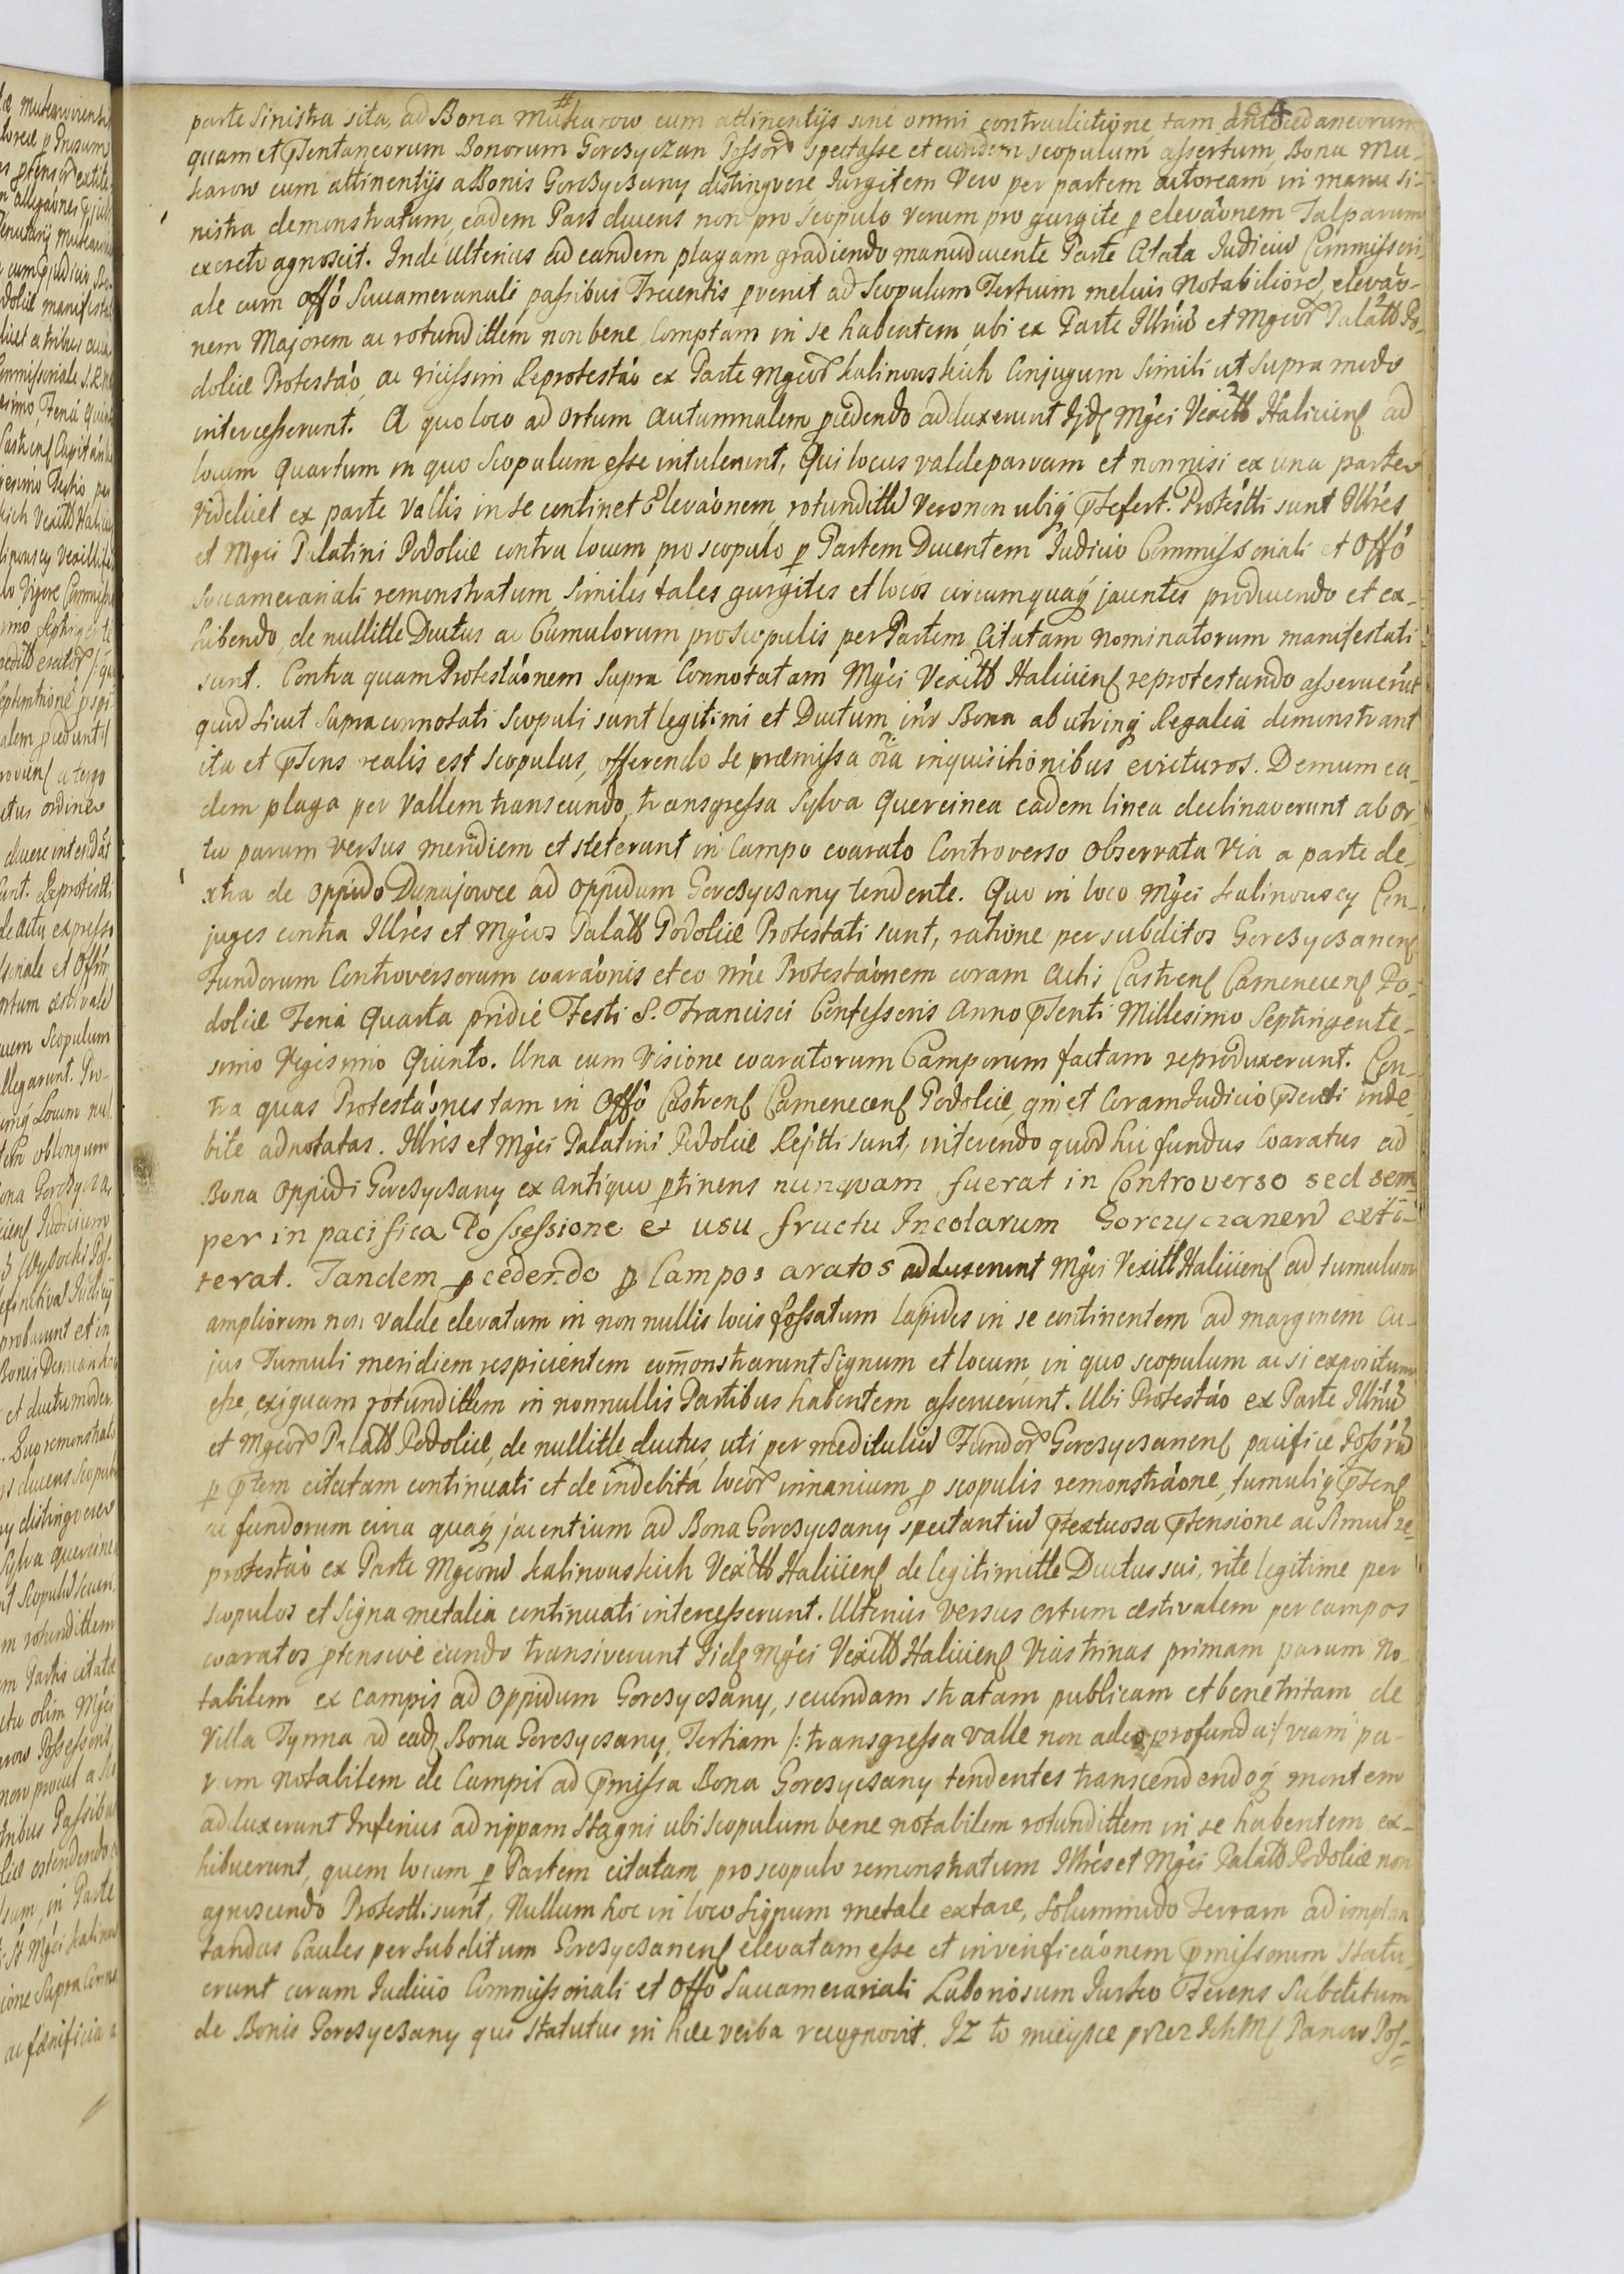 134
parte sinistra sita, ad Bona Mukarow cum attinentijs sine omni contradictione tam antecedaneorum
quam et pntaneorum Bonorum Gorczyczan Possor spectasse et eundem scopulum assertum Bona Mu-
karow cum attinentijs a Bonis Gorczyczany distinguere Gurgitem Vero per partem actoream in manu si-
nistra demonstratum, eadem Pars ducens non pro scopulo verum pro gurgite p elevaonem Talparum
excreto agnoscit. Inde ulterius ad eandem plagam gradiendo manuducente Parte Citata Judiciu Commissori-
ale cum Offo Succamerariali passibus Trecentis pvenit ad Scopulum Tertium melius Notabiliore, elevao-
nem Majorem ac rotunditlem non bene Comptam in se habentem, ubi ex Parte Illriu et Mgcor Palatt Po-
doliæ Protestao, ac vicissim Reprotestao ex Parte Mgcor Kalinowskich Conjugum simili ut supra modo
intercesserunt. A quo loco ad Ortum Autumnalem pcedendo adduxerunt Ijdς Mgci Vexitt Haliciens ad
locum Quartum in quo Scopulum esse intulerunt, Qui locus valde parvam et non nisi ex una parte
Videlicet ex parte Vallis in se continet Elevaonem, rotunditle Vero non ubiq pfefert. Protestti sunt Illres
et Mgci Palatini Podoliæ contra locum pro scopulo p Partem Ducentem Judicio Commissoriali et Offo
Succamerariali remonstratum, similes tales gurgites et locos circumquaq jacentes producendo et ex-
hibendo, de nullitle Ductus ac Cumulorum pro Scopulis per Partem Citatam nominatorum manifestati
sunt. Contra quam Protestaonem supra Connotatam Mgci Vexitt Haliciens reprotestando asseruerut
quod sicut supra connotati scopuli sunt legitimi et Ductum inr Bona ab utrinq Regalia demonstrant
ita et pns realis est scopulus, offerendo se præmissa oia inquisitionibus evicturos. Demum ea-
dem plaga per Vallem transeundo, transgressa Sylva Quercinea eadem linea declinaverunt ab or-
tu parum versus meridiem et steterunt in Campo exarato Controverso observata via a parte de-
xtra de Oppido Dunajowce ad Oppidum Gorczyczany tendente. Quo in loco Mgci Kalinowscy Con-
juges contra Illres et Mgcos Palatt Podoliæ Protestati sunt, ratione per subditos Gorczyczanens
Fundorum Controversorum exaraonis et eo nne Protestaonem coram Actis Castrens Camenecens Po-
doliæ Feria Quarta pridie Festi S. Francisci Confessoris Anno pnti Millesimo Septingente-
simo Vigesimo Quinto. Una cum Visione exaratorum Camporum factam reproduxerunt. Con-
tra quas Protestaones tam in Offo Castrens Camenecens Podoliæ, qm et Coram Judicio pnti inde-
bite adnotatas. Illres et Mgci Palatini Podoliæ Reptti sunt, inferendo quod hic fundus exaratus ad
Bona Oppidi Gorczyczany ex antiquo ptinens nunqvam fuerat in Controverso sed sem-
per in pacifica Possessione et usu fructu Incolarum Gorczyczanen exti-
terat. Tandem pcedendo p Campos aratos adduxerunt Mgci Vexitt Haliciens ad tumulum
ampliorem non valde elevatum in non nullis locis fossatum lapides in se continentem ad marginem cu-
jus Tumuli meridiem respicientem comonstrarunt Signum et locum, in quo scopulum ac si expositum
esse, exiguam rotunditlem in nonnullis Partibus habentem asseruerunt. Ubi Protestao ex Parte Illriu
et Mgcor Palatt Podoliæ, de nullitle ductus, uti per meditulliu Fundor Gorczyczanens pacifice Possru
p ptem citatam continuati et de indebita locor innanium p scopulis remonstraone, tumuliq ptens
ac fundorum circa quaq jacentium ad Bona Gorczyczany spectantiu ptextuosa ptensione ac simul re-
protestao ex Parte Mgcoru Kalinowskich Vexitt Haliciens de legitimitle Ductus sui, rite legitime per
scopulos et Signa metalia continuati intercesserunt. Ulterius versus ortum æstivalem per campos
exaratos ptensive eundo transiverunt Iidς Mgci Vexitt Haliciens Vias trinas primam parum No-
tabilem ex campis ad Oppidum Gorczyczany, secundam stratam publicam et bene tritam de
Villa Tynna ad eadς Bona Gorczyczany, Tertiam /: transgressa valle non adeo profunda :/ viam pa-
rum notabilem de Campis ad pmissa Bona Gorczyczany tendentes transcendendoq montem
adduxerunt Inferius ad rippam Stagni ubi scopulum bene notabilem rotunditlem in se habentem, ex-
hibuerunt, quem locum p Partem citatam pro scopulo remonstratum Illres et Mgci Palatt Podoliæ non
agnoscendo Protestti sunt, Nullum hoc in loco Signum metale extare, solummodo Terram ad implan
tandas Caules per Subditum Gorczyczanens elevatam esse et in verificaonem pmissorum statu-
erunt coram Judicio Commissoriali et Offo Succamerariali Laboriosum Jurko Ferens Subditum
de Bonis Gorczyczany qui statutus in hæc verba recognovit. Iz to mieysce przez IchMς Panow Pos-